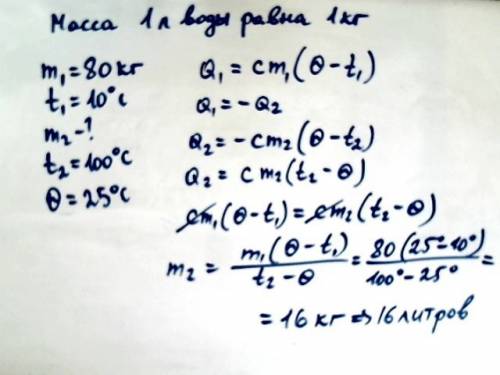 Масса 1 л воды равна 1 кг
m₁ = 80 кг
t₁ = 10°C
m₂ - ?
t₂ = 100°C
Θ = 25°C
Q₁ = cm₁(Θ - t₁)
Q₁ = -Q₂
Q₂ = -cm₂(Θ - t₂)
Q₂ = cm₂(t₂ - Θ)
cm₁(Θ - t₁) = cm₂(t₂ - Θ)
m₂ = m₁(Θ - t₁) / t₂ - Θ = 80(25° - 10°) / 100° - 25° =
= 16 кг ⇒ 16 литров